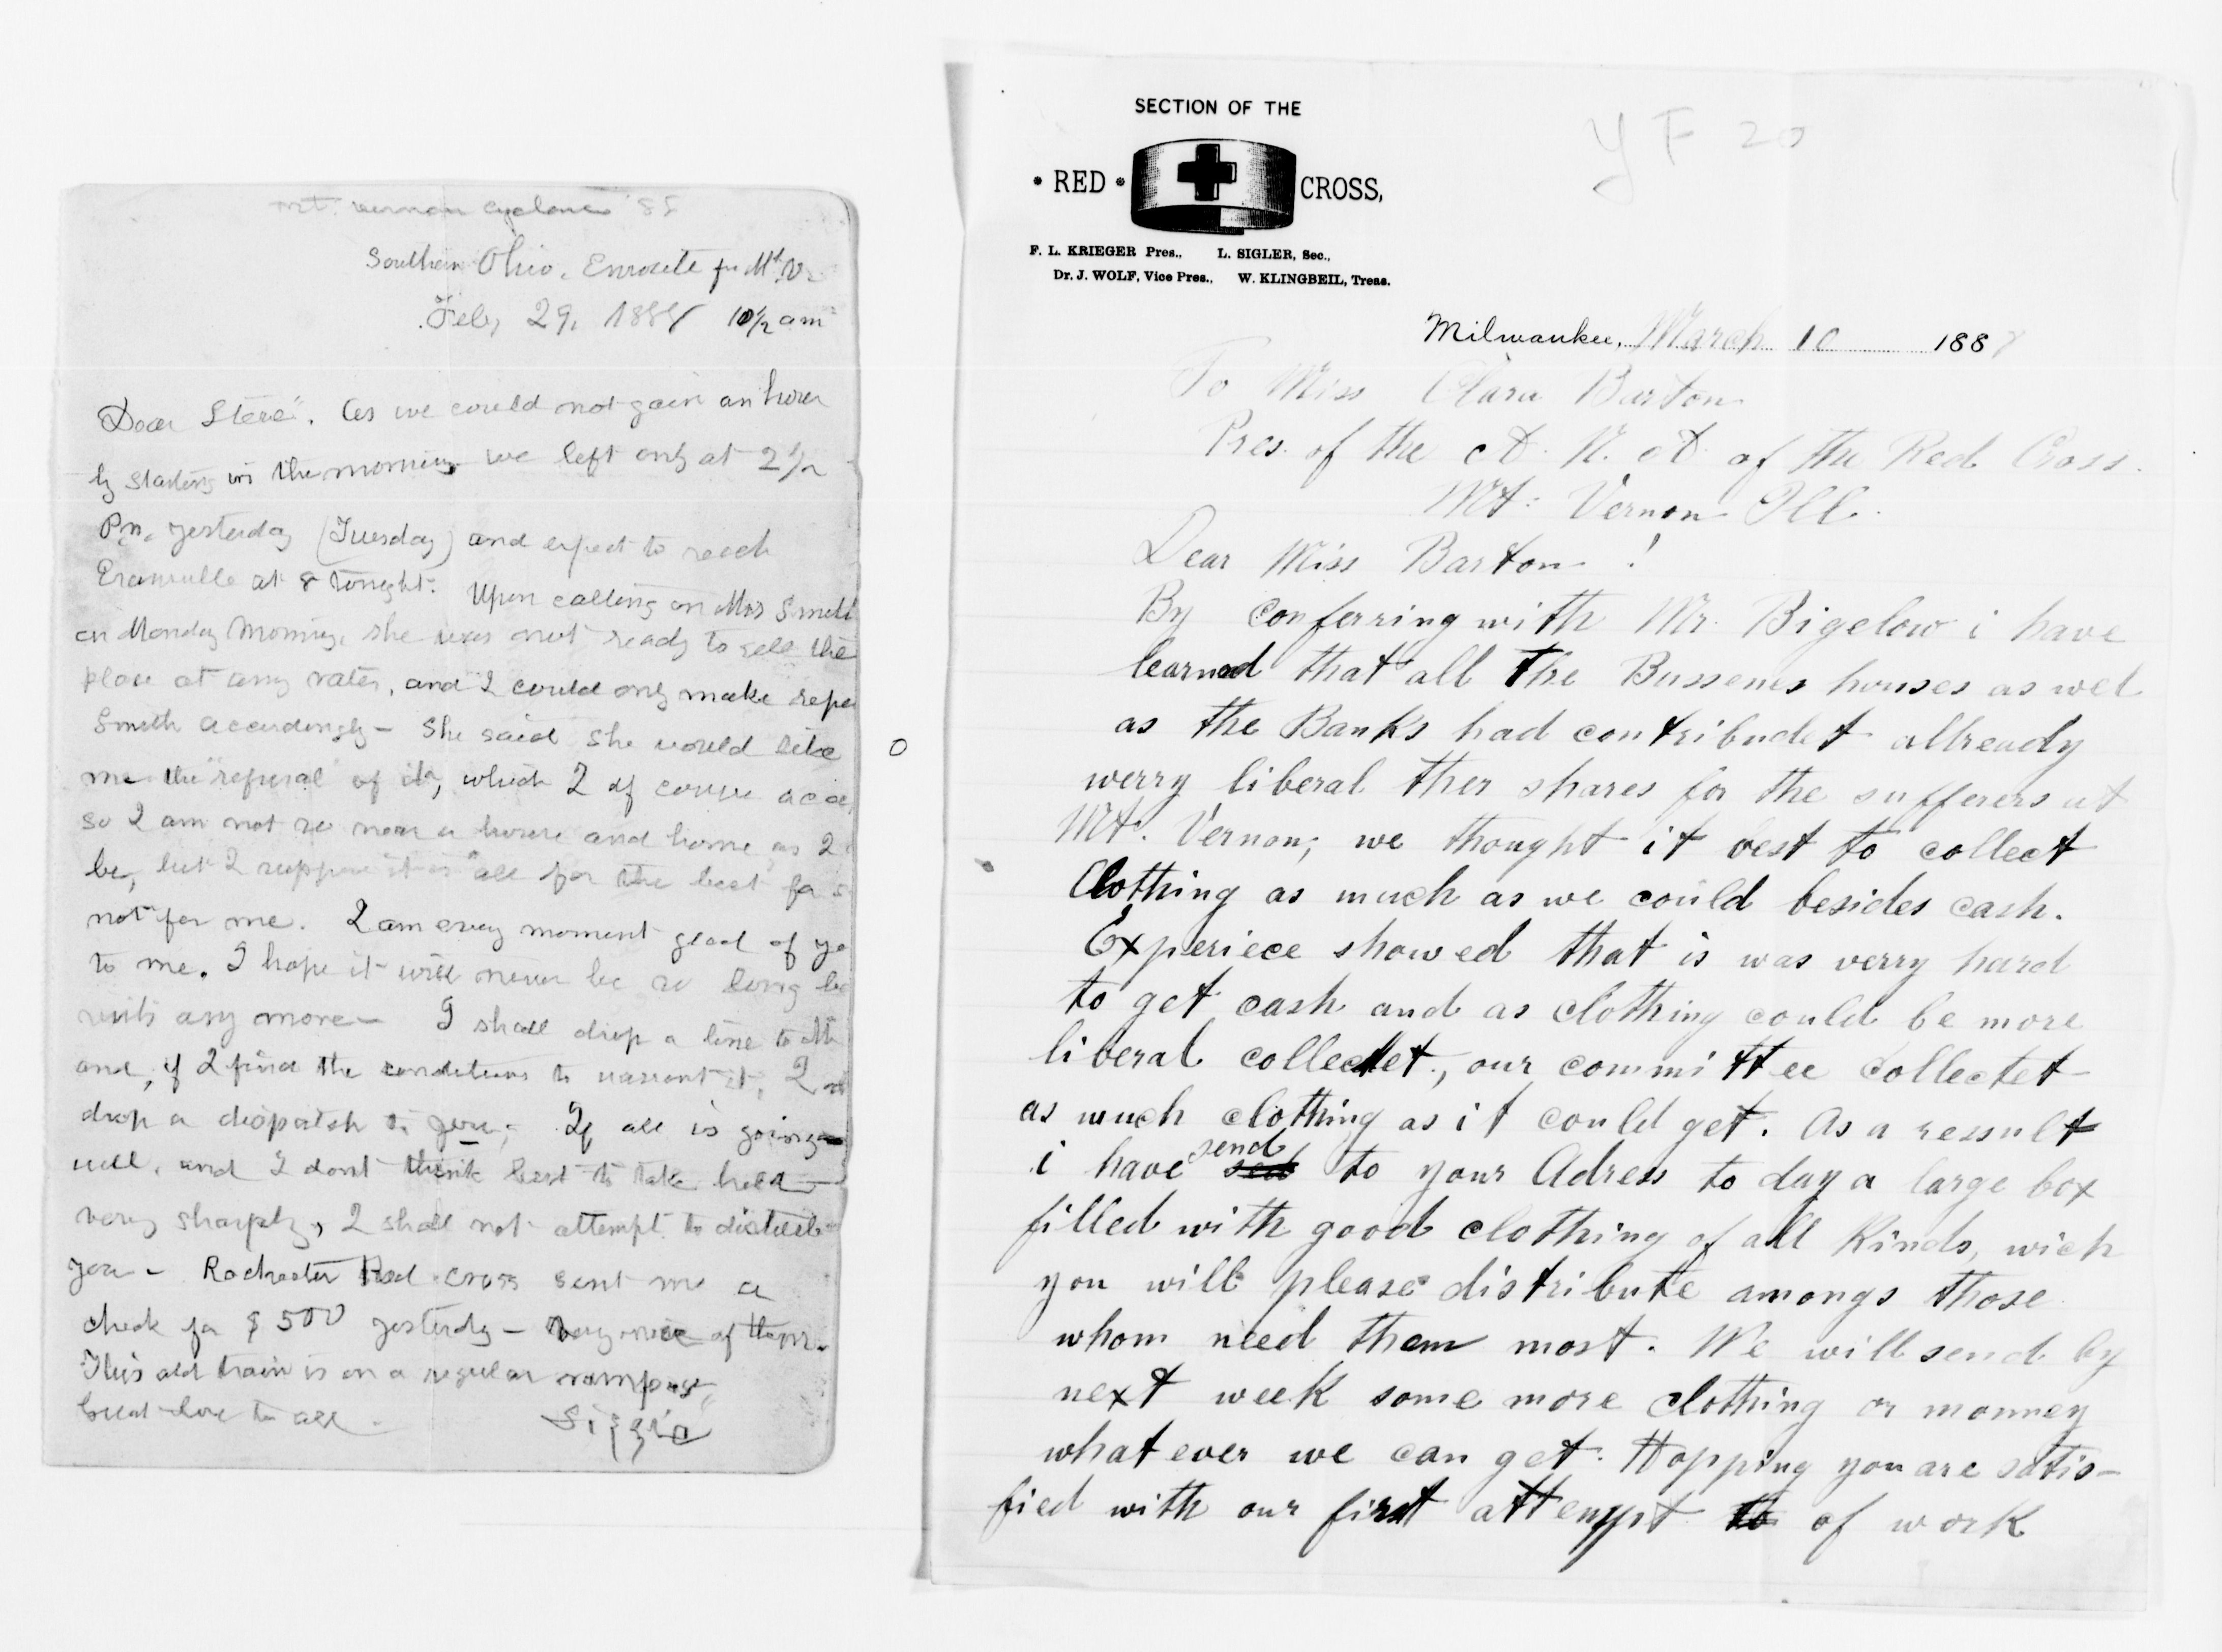 mt. vernon cyclone '88
Southern Ohio, Enroute for Mt. V
Feb, 29, 1888 10½ am
Dear Stevé. As we could not gain an hour
by starting in the morning we left only at 2½
P.m. yesterday (Tuesday) and expect to reach
at 8 tonight. Upon calling on Mrs Smith
on Monday morning, she was not ready to sell the
place at any rates, and I could only make
Smith accordingly - She said she would like
me the "refusal" of it, which I of course
so I am not so near a house and home as I
be, but I suppose it is all for the best for
not for me. I am every moment glad of yo
to me. I hope it will never be so long be
visits any more - I shall drop a line to
and, if I find the conditions to warrant it, I
drop a dispatch to you; If all is going
well, and I dont think best to take hold
very sharply, I shall not attempt to disturb
you - Rochester Red cross sent me a
check for $500 yesterdy - very nice of them.
This old train is on a regular rampage,
Great love to all.

SECTION OF THE
RED CROSS,
F. L. KRIEGER Pres., L. SIGLER, Sec.,
Dr. J. WOLF, Vice Pres., W. KLINGBEIL, Treas.
Y F 20
Milwaukee, March 10 1888
To Miss Clara Barton
Pres. of the A. N. A. of the Red Cross.
Mt: Vernon Ill.
Dear Miss Barton !
By Conferring with Mr. Bigelow i have
learned that all the Bussenes houses as wel
as the Banks had contribudet allready
werry liberal ther shares for the sufferers at
Mt. Vernon; we thought it best to collect
Clothing as much as we could besides cash.
Experiece showed that is was verry hard
to get cash and as clothing could be more
liberal collectet, our committee collectet
as much clothing as it could get. As a ressult
i have send to your Adress to day a large box
filled with good clothing of all Kinds, wich
you will please distribute amongs those
whom need them most. We will send by
next week some more clothing or monney
what ever we can get. Hopping you are satis-
fied with our first attempt to of work